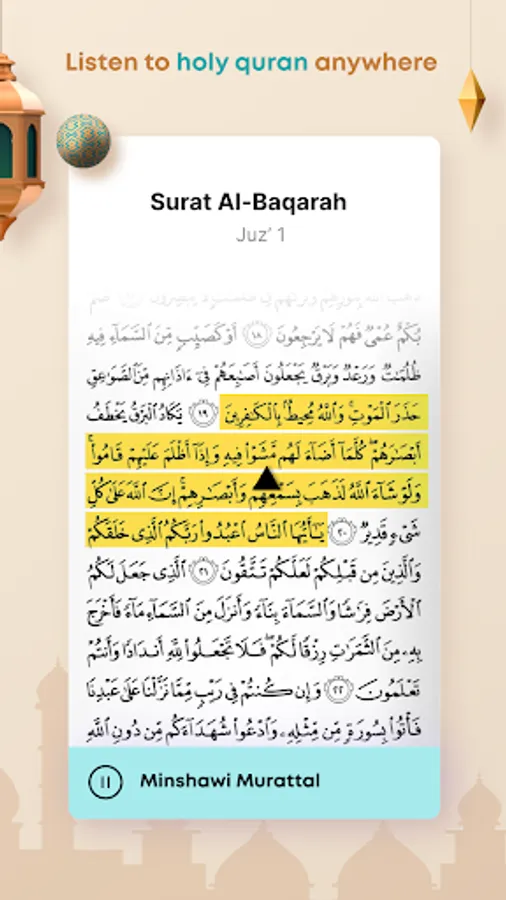 Listen to holy quran anywhere
Surat Al-Baqarah
Juz’ 1
بُكْمٌ عُمْىٌ فَهُمْ لَا يَرْجِعُونَ ١٨ أَوْ كَصَيِّبٍ مِّنَ ٱلسَّمَآءِ فِيهِ
ظُلُمَٰتٌ وَرَعْدٌ وَبَرْقٌ يَجْعَلُونَ أَصَٰبِعَهُمْ فِىٓ ءَاذَانِهِم مِّنَ ٱلصَّوَٰعِقِ
حَذَرَ ٱلْمَوْتِ ۚ وَٱللَّهُ مُحِيطٌۢ بِٱلْكَٰفِرِينَ ١٩ يَكَادُ ٱلْبَرْقُ يَخْطَفُ
أَبْصَٰرَهُمْ ۖ كُلَّمَآ أَضَآءَ لَهُم مَّشَوْا۟ فِيهِ وَإِذَآ أَظْلَمَ عَلَيْهِمْ قَامُوا۟ ۚ
وَلَوْ شَآءَ ٱللَّهُ لَذَهَبَ بِسَمْعِهِمْ وَأَبْصَٰرِهِمْ ۚ إِنَّ ٱللَّهَ عَلَىٰ كُلِّ
شَىْءٍ قَدِيرٌ ٢٠ يَٰٓأَيُّهَا ٱلنَّاسُ ٱعْبُدُوا۟ رَبَّكُمُ ٱلَّذِى خَلَقَكُمْ
وَٱلَّذِينَ مِن قَبْلِكُمْ لَعَلَّكُمْ تَتَّقُونَ ٢١ ٱلَّذِى جَعَلَ لَكُمُ
ٱلْأَرْضَ فِرَٰشًا وَٱلسَّمَآءَ بِنَآءً وَأَنزَلَ مِنَ ٱلسَّمَآءِ مَآءً فَأَخْرَجَ
بِهِۦ مِنَ ٱلثَّمَرَٰتِ رِزْقًا لَّكُمْ ۖ فَلَا تَجْعَلُوا۟ لِلَّهِ أَندَادًا وَأَنتُمْ
تَعْلَمُونَ ٢٢ وَإِن كُنتُمْ فِى رَيْبٍ مِّمَّا نَزَّلْنَا عَلَىٰ عَبْدِنَا
فَأْتُوا۟ بِسُورَةٍ مِّن مِّثْلِهِۦ وَٱدْعُوا۟ شُهَدَآءَكُم مِّن دُونِ ٱللَّهِ
Minshawi Murattal